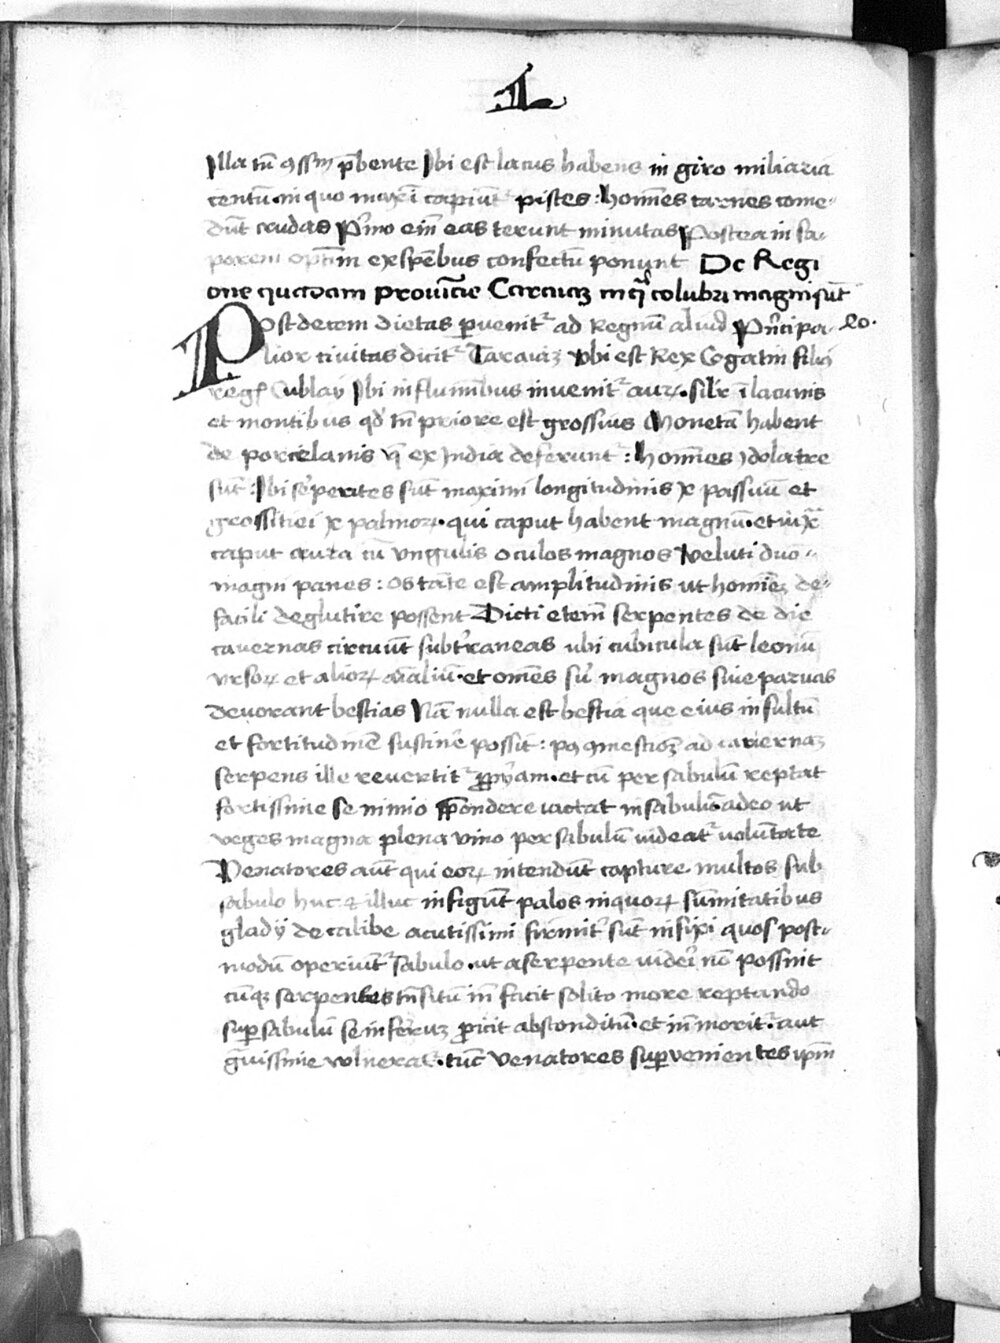 L
Illa tn̄ ꝯssm̄ p̄bente Ibi est lacus habens in giro miliaria
centū in quo maxi capiūt᷑ pisces : hom̄es carnes come-
dūt crudas P̄mo eīn eas terunt minutas Postea in sa-
porem optīm ex spēbus confectū ponunt De Regi
one quadam prouīcie Carcaiaȝ in q̄ colubri magni sūt
Post decem dietas ꝑuenit᷑ ad Regnū aliud P̄ncipa- lo.
lior ciuitas dicit᷑ Caraiaȝ vbi est Rex Cogatin filiꝰ
reg̃ Cublay Ibi in fluminibus inuenit᷑ auꝝ. silr̄ ī lacunis
et montibus qd̄ tn̄ priore est grossius Monetā habent
de porcelanis q̄ ex India deferunt᷑ : hom̄es ydolatre
sūt : Ibi s̄pentes sūt maximi longitudinis x passuū et
grossitiei x palmoꝝ. qui caput habent magnū. et iuxᵃ
caput crura cū vngulis oculos magnos veluti duo
magni panes : os tāte est amplitudinis ut hom̄eȝ de
facili deglutire possent Dicti etem̄ serpentes de die
cauernas circuūt subt̄raneas ubi cubicula sūt leonū
vrsoꝝ et alioꝝ aīaliū. et om̄es fꝰ magnos siue paruas
deuorant bestias Nā nulla est bestia que eius insultū
et fortitudinē sustin̄e possit : pꝰ ꝯmestioȝ ad cauernaȝ
serpens ille reuertit᷑ ꝓp̄am. et cū per sabulū reptat
fortissime se nimio pondere iactat in sabulo adeo ut
veges magna plena vino per sabulū videat᷑ voluntate
Venatores aūt qui eoꝝ intendūt capture multos sub
sabulo huc ⁊ illuc infigūt palos in quoꝝ sūmitatibus
gladij de calibe acutissimi firmit᷑ sūt infixi quos post-
modū operiūt᷑ sabulo. ut a serpente videri nō possint
cūqꝫ serpentes trn̄situ īn facit solito more reptando
suꝑ sabulū se in ferrꝫ ꝓicit absconditū. et īn morit᷑. aut
gᷓuissime vulnerat᷑. tūc venatores suꝑvenientes ip̄m